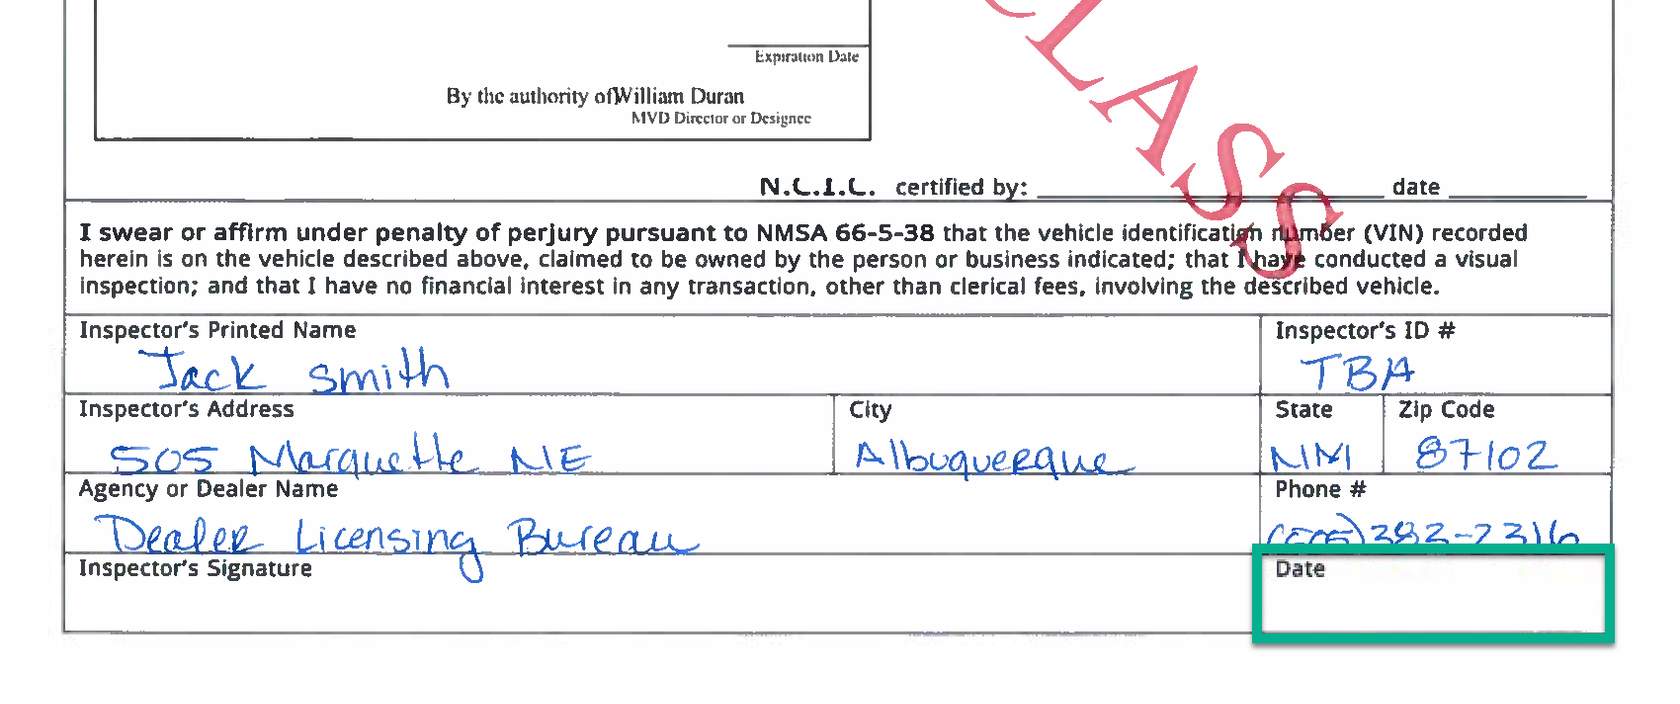 Expiration Date
By the authority ofWilliam Duran
MVD Director or Designee
CLASS
N.C.I.C. certified by: date
I swear or affirm under penalty of perjury pursuant to NMSA 66-5-38 that the vehicle identification number (VIN) recorded
herein is on the vehicle described above, claimed to be owned by the person or business indicated; that I have conducted a visual
inspection; and that I have no financial interest in any transaction, other than clerical fees, involving the described vehicle.
Inspector's Printed Name Inspector's ID #
Jack Smith TBA
Inspector's Address City State Zip Code
505 Marquette NE Albuquerque NM 87102
Agency or Dealer Name Phone #
Dealer Licensing Bureau
Inspector's Signature Date